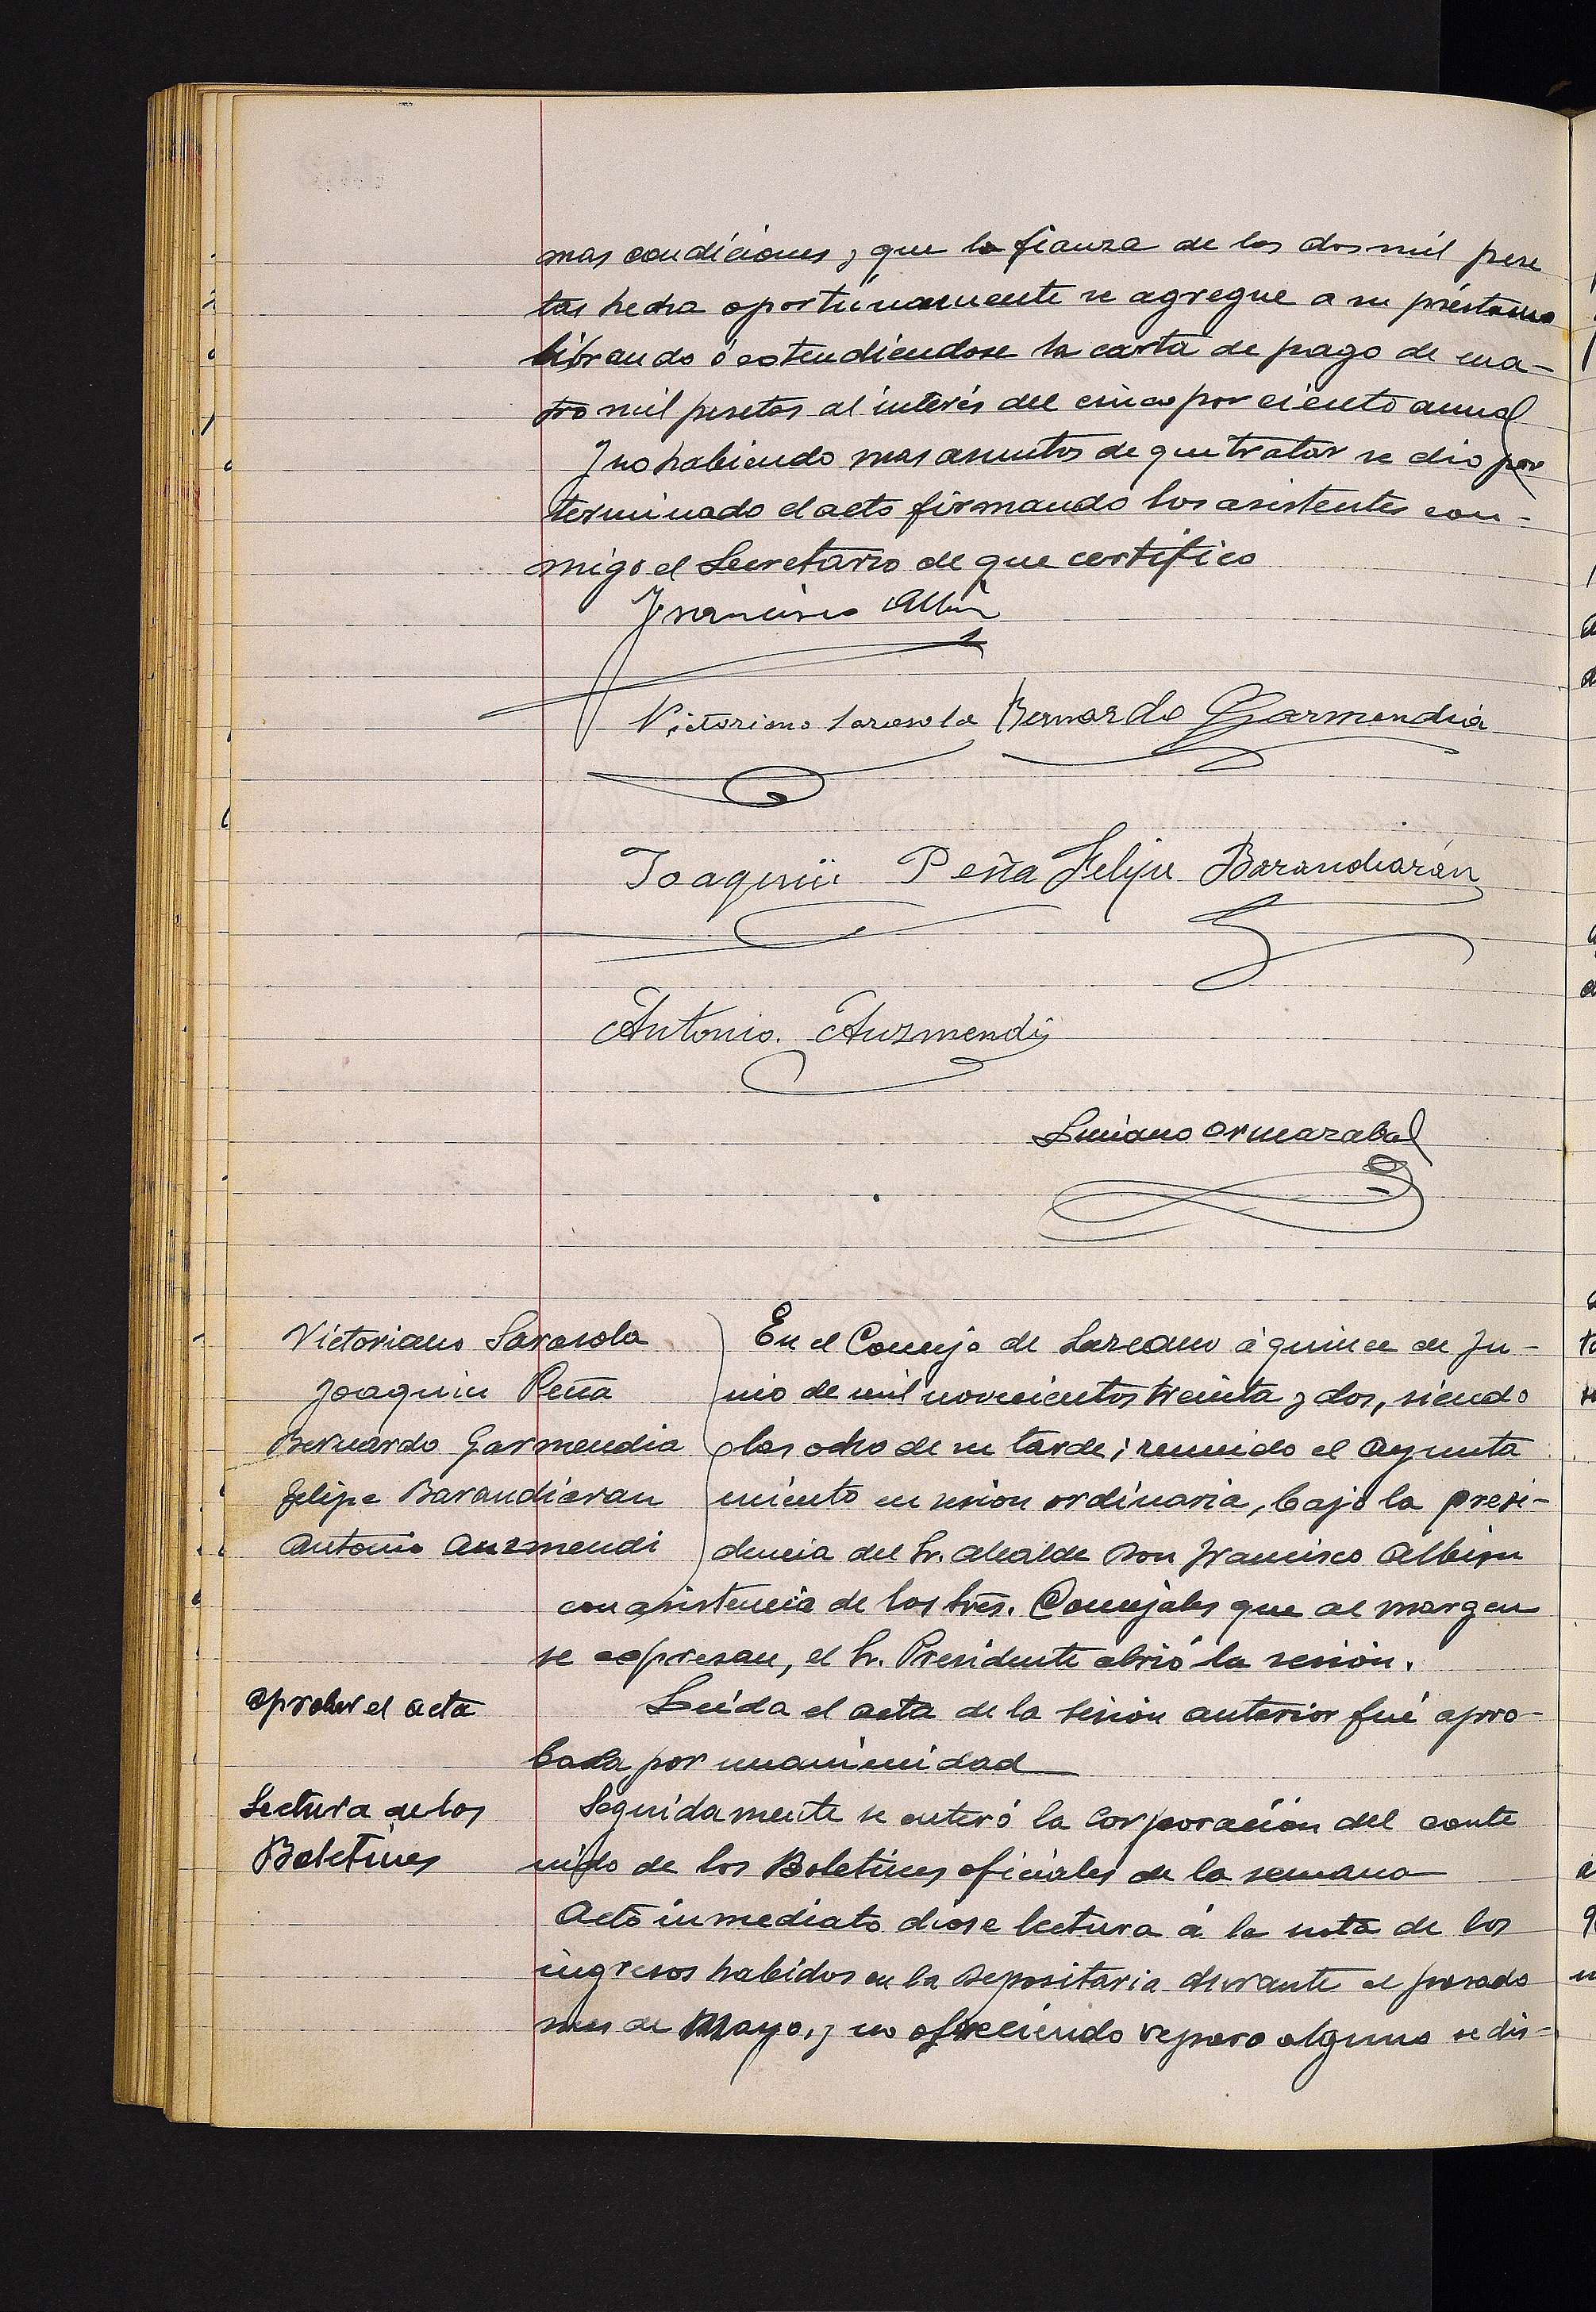 mas condiciones y que la fianza de las dos mil pese
tas hecha oportunamente se agregue a su préstamo
librando ó estendiendose la carta de pago de cua-
tro mil pesetas al interés del cinco por ciento anual
Y no habiendo mas asuntos de que tratar se dio por
terminado el acto firmando los asistentes con-
migo el Secretario de que certifico
Francisco Albisu
Victoriano Sarasola Bernardo Garmendia
Joaquin Peña Felipe Barandiarán
Antonio. Auzmendi
Luciano Ormazabal
Victoriano Sarasola
Joaquin Peña
Bernardo Garmendia
Felipe Barandiaran
Antonio Auzmendi
En el Concejo de Lazcano á quince de Ju-
nio de mil novecientos treinta y dos, siendo
las ocho de su tarde; reunido el Ayunta
miento en sesion ordinaria, bajo la presi-
dencia del Sr. Alcalde Don Francisco Albisu
con asistencia de los Sres. Concejales que al margen
se espresan, el Sr. Presidente abrió la sesión.
aprobar el acta
Leida el acta de la sesión anterior fué apro-
bada por unanimidad
Lectura de los
Boletines
Seguidamente se enteró la Corporación del conte
nido de los Boletines oficiales de la semana
Acto inmediato diose lectura á la nota de los
ingresos habidos en la Depositaria durante el pasado
mes de Mayo, y no ofreciendo reparo alguno se dis-